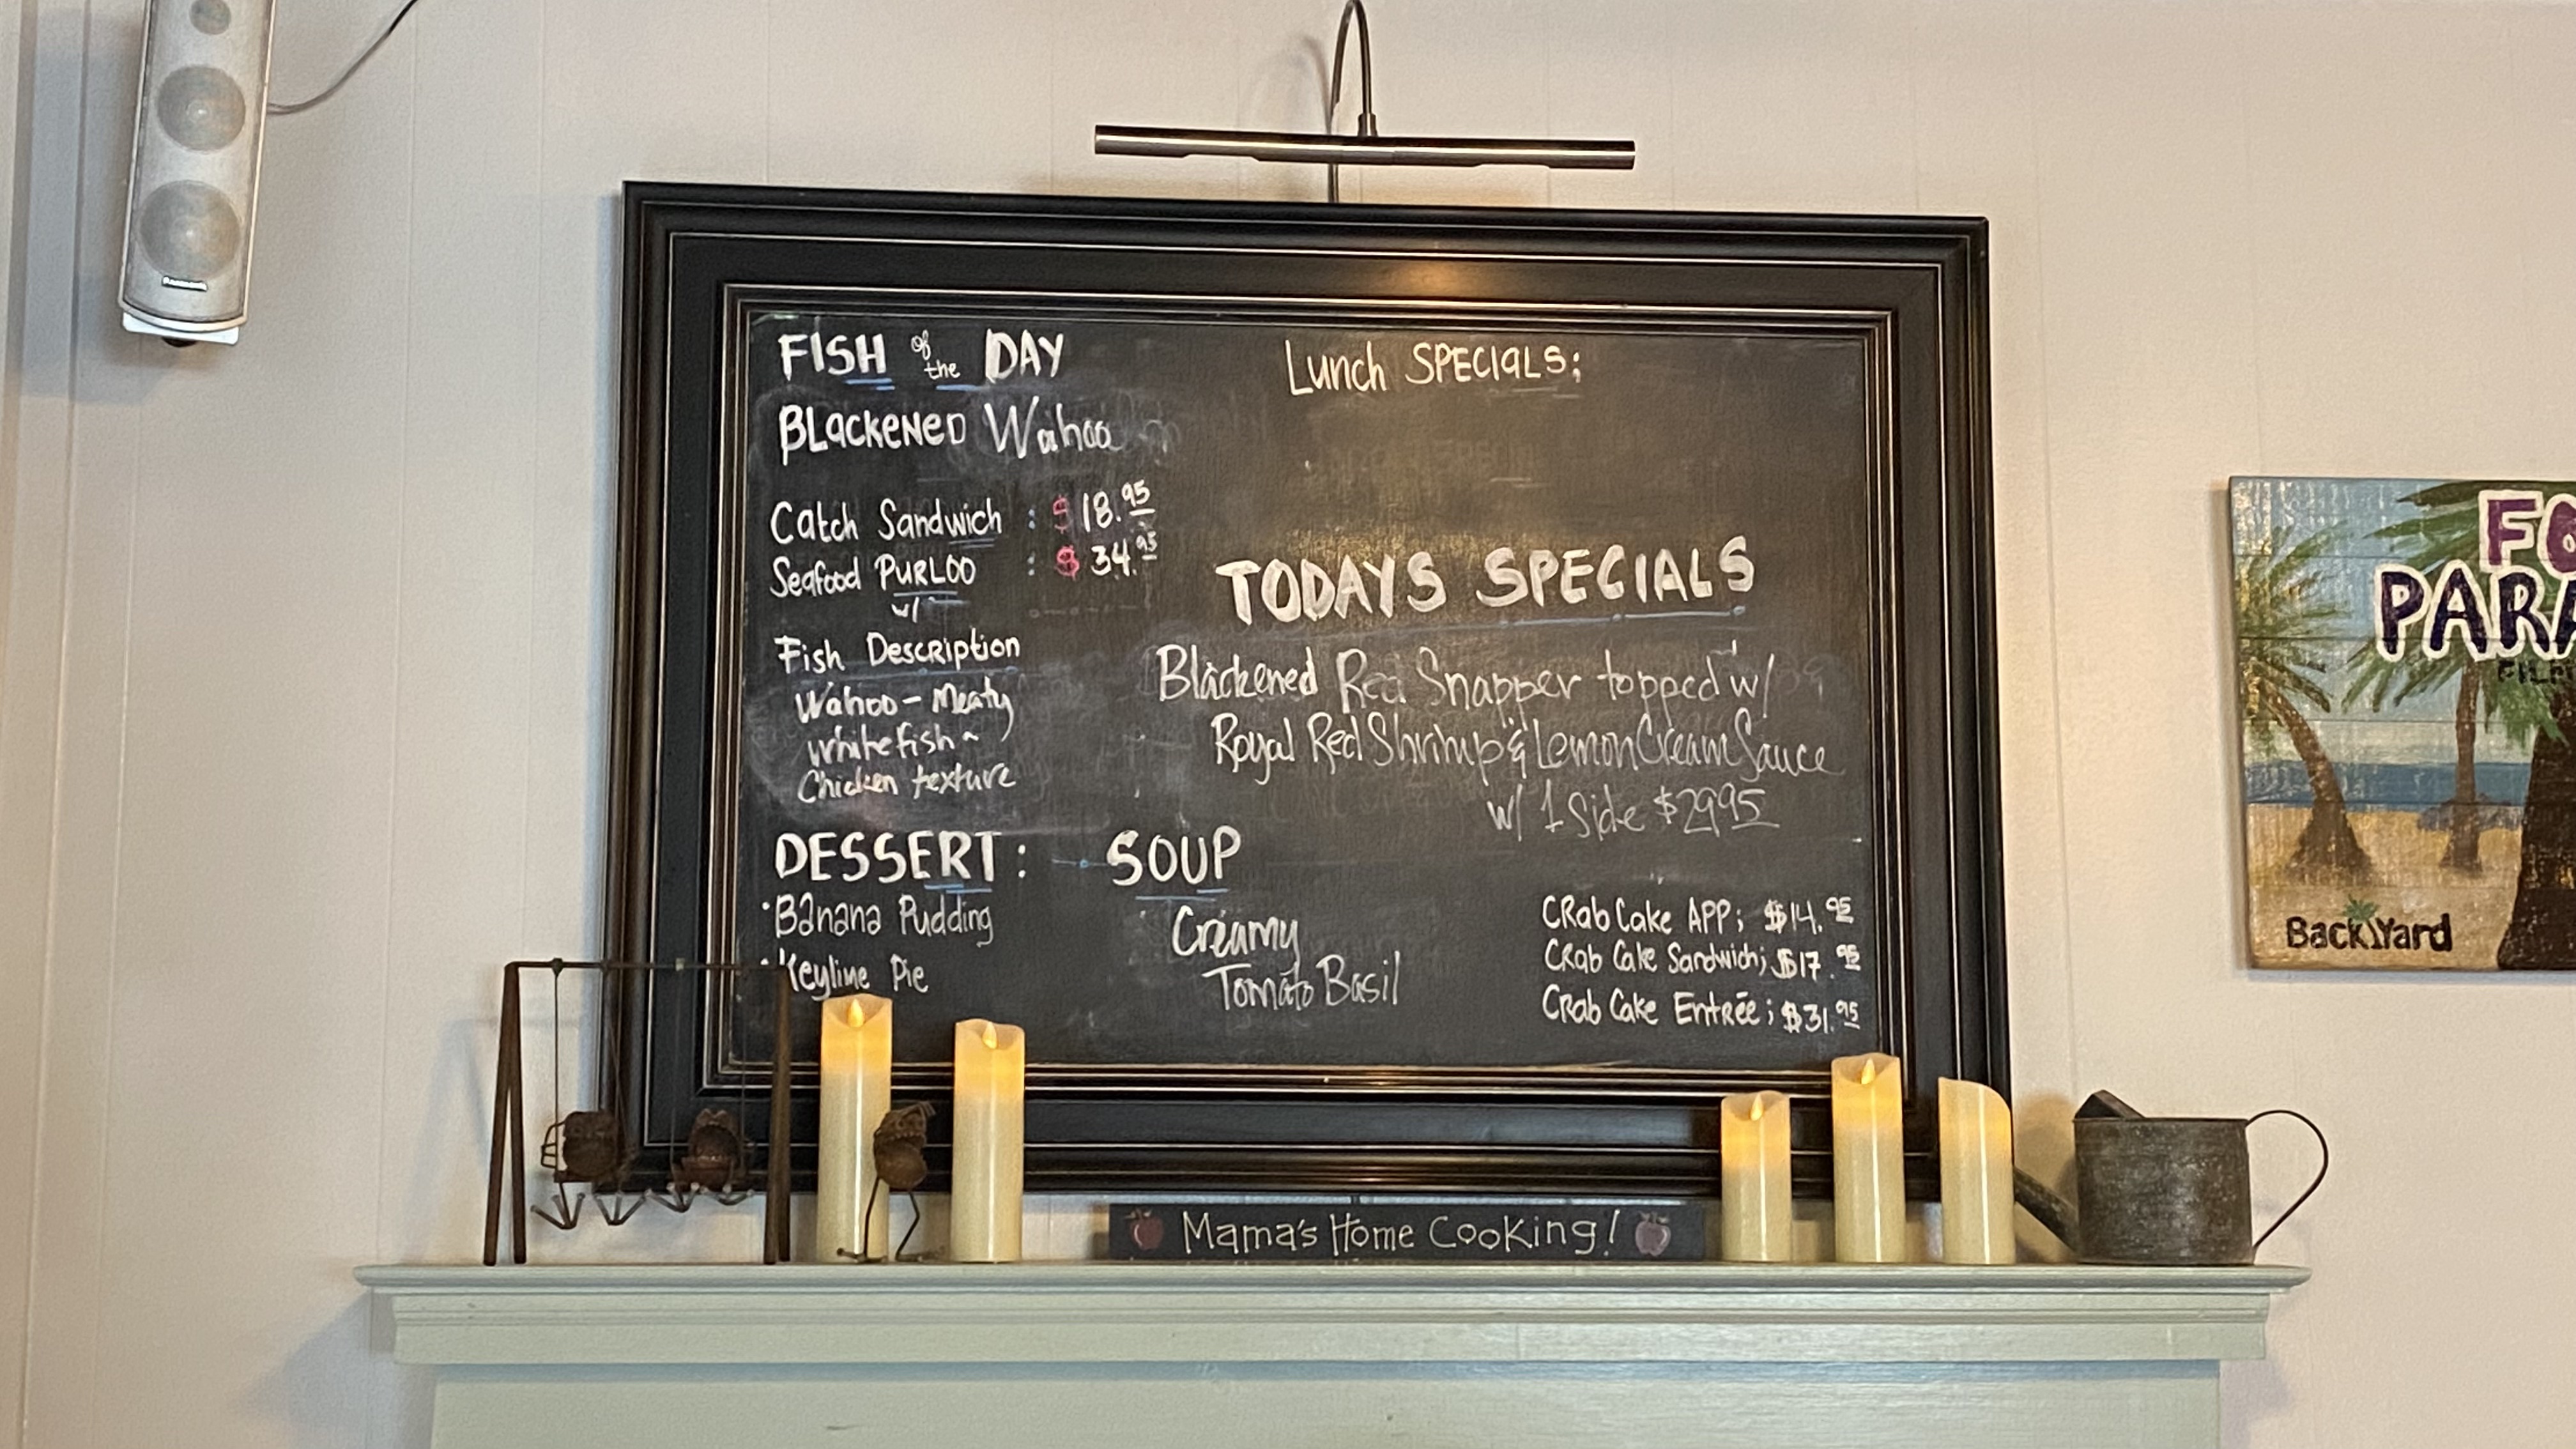 FISH of the DAY
BLackeNeD Wahoo
Catch Sandwich : $18.95
Seafood PURLOO : $34.95
w/
Fish Description
Wahoo - Meaty
whitefish ~
Chicken texture
DESSERT:
· Banana Pudding
· Keylime Pie
SOUP
Creamy
Tomato Basil
Lunch SPECIaLS:
TODAYS SPECIALS
Blackened Red Snapper topped w/
Royal Red Shrimp & Lemon Cream Sauce
w/ 1 Side $29.95
CRab Cake APP; $14.95
CRab Cake Sandwich; $17.95
CRab Cake Entrée; $31.95
Mama's Home Cooking!
BackYard